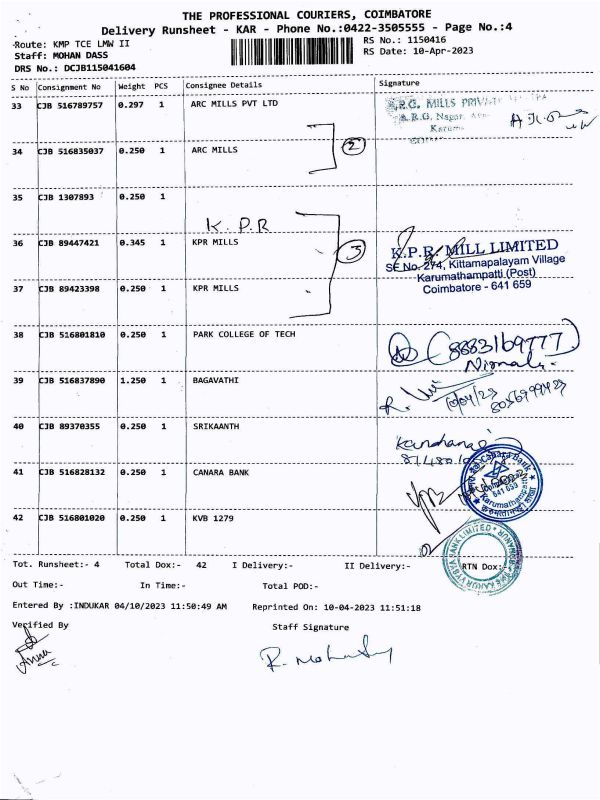 THE PROFESSIONAL COURIERS, COIMBATORE
Delivery Runsheet - KAR - Phone No.:0422-3505555 - Page No.:4
Route: KMP TCE LMW II
RS No.: 1150416
Staff: MOHAN DASS
RS Date: 10-Apr-2023
DRS No.: DCJB115041604
S No Consignment No Weight PCS Consignee Details Signature
33 CJB 516789757 0.297 1 ARC MILLS PVT LTD
A.R.G. MILLS PRIVATE
A.R.G. Nagar,
34 CJB 516835037 0.250 1 ARC MILLS
2
35 CJB 1307893 0.250 1
K.P.R
36 CJB 89447421 0.345 1 KPR MILLS
3
K.P.R. MILL LIMITED
SF No. 274, Kittamapalayam Village
Karumathampatti (Post)
Coimbatore - 641 659
37 CJB 89423398 0.250 1 KPR MILLS
38 CJB 516801810 0.250 1 PARK COLLEGE OF TECH
(8883169777)
Nirmala
39 CJB 516837890 1.250 1 BAGAVATHI
10/04/23
40 CJB 89370355 0.250 1 SRIKAANTH
41 CJB 516828132 0.250 1 CANARA BANK
Canara Bank
641 659
42 CJB 516801020 0.250 1 KVB 1279
Tot. Runsheet:- 4 Total Dox:- 42 I Delivery:- II Delivery:- RTN Dox:-
Out Time:- In Time:- Total POD:-
Entered By :INDUKAR 04/10/2023 11:50:49 AM Reprinted On: 10-04-2023 11:51:18
Verified By Staff Signature